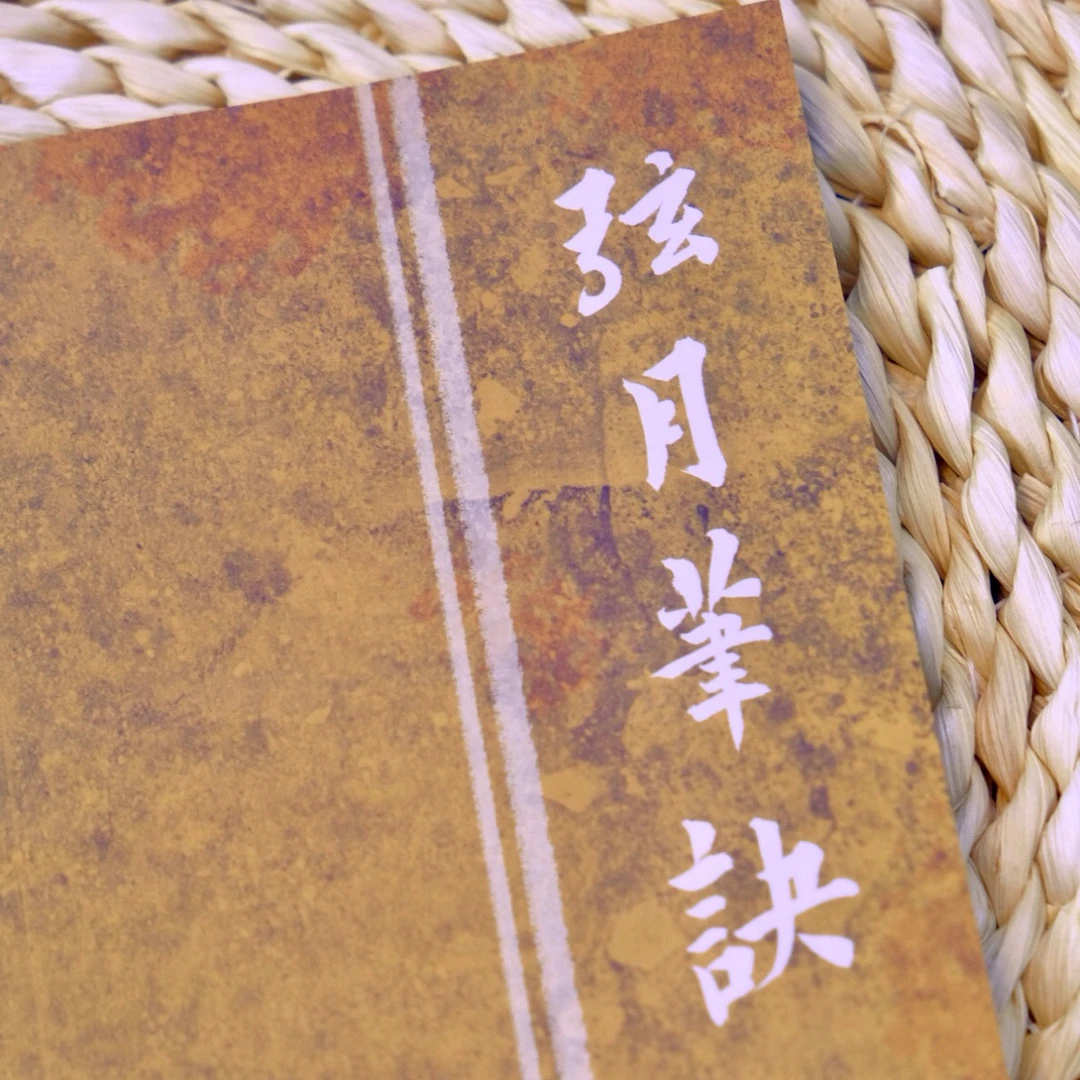 弦月筆訣